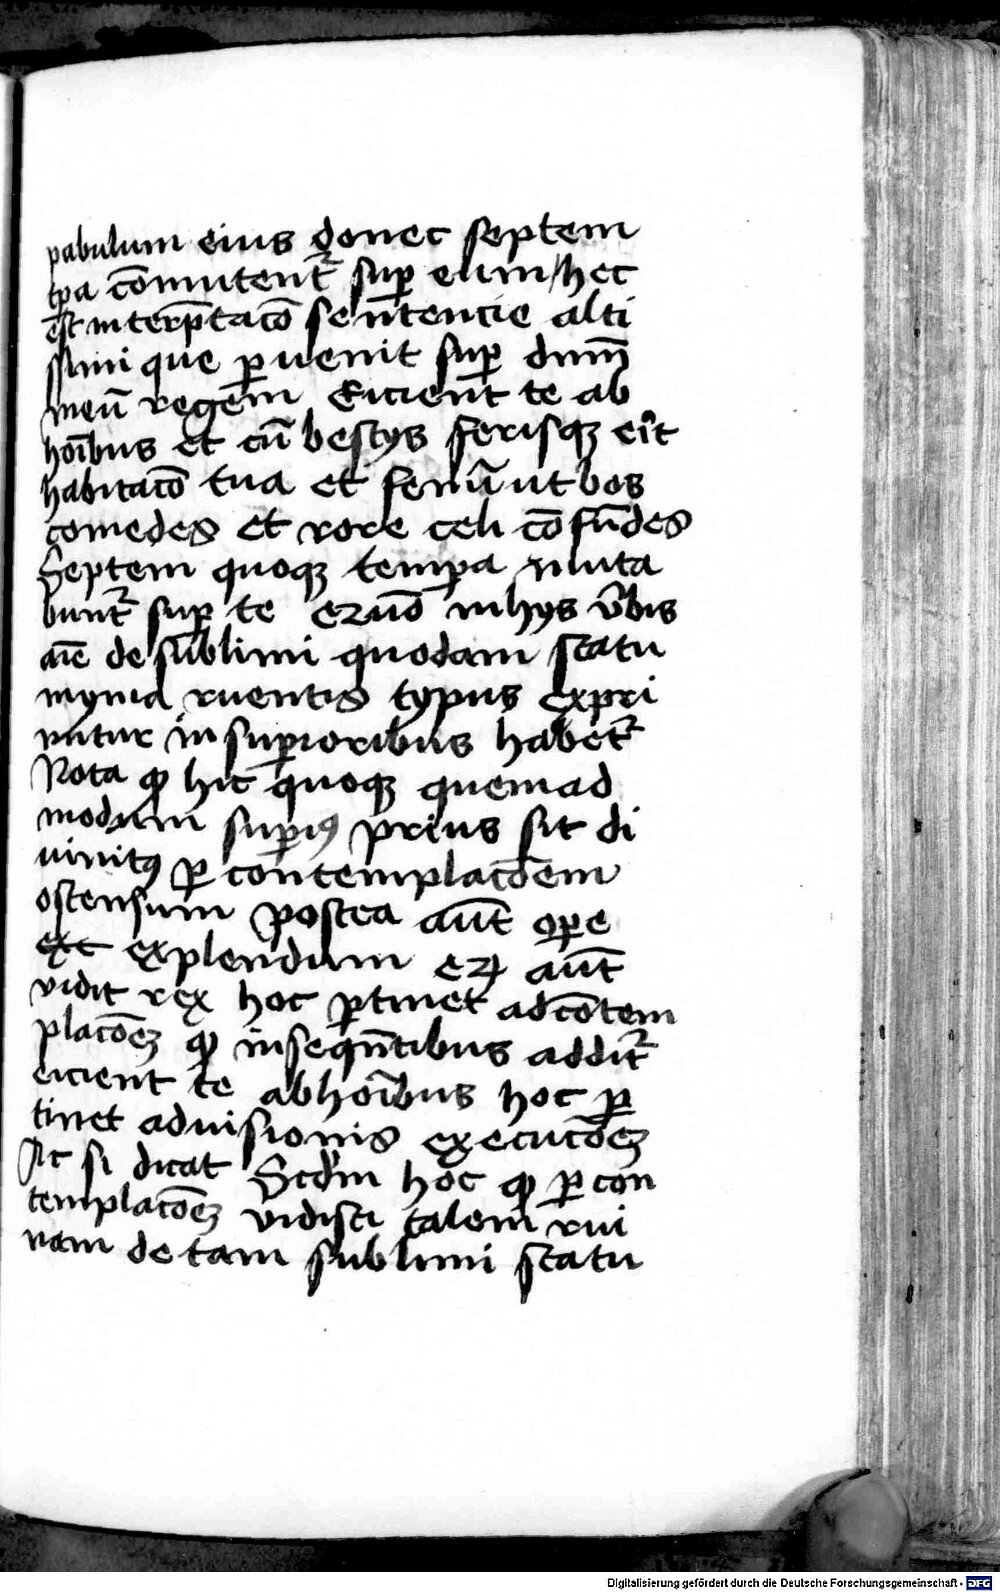 pabulum eius donec septem
tp̄a cōmutent᷑ sup̲ eum / hec
est interp̄tacō sentencie alti
ssimi que p̲uenit sup̲ dnm̄
meū regem Eicient te ab
hoībus et cū bestijs ferisqꝫ erit
habitacō tua et fenū ut bos
comedes et rore celi cō fūdes
Septem quoqꝫ temp̲a muta
bunt᷑ sup̲ te in hijs v̄bis
aīe de sublimi quodam statu
ruentis typus expri
mitur in sup̲ioribus habet᷑
Nota ꝙ hic quoqꝫ quemad
modum sup̲iꝰ prius sit di
uinitꝰ p̲ contemplacōem
ostensum postea aut̄ op̲e
ext explendum aut̄
vidit rex hoc p̲tinet ad cōtem
placōeꝫ ꝙ in seqn̄tibus addit᷑
eicient te ab hoībus hoc p̲
tinet ad uisionis execucōeꝫ
Ac si dicat Scdm̄ hoc ꝙ p̲ con
templacōeꝫ vidisti talem rui
nam de tam sublimi statu
Digitalisierung gefördert durch die Deutsche Forschungsgemeinschaft - DFG